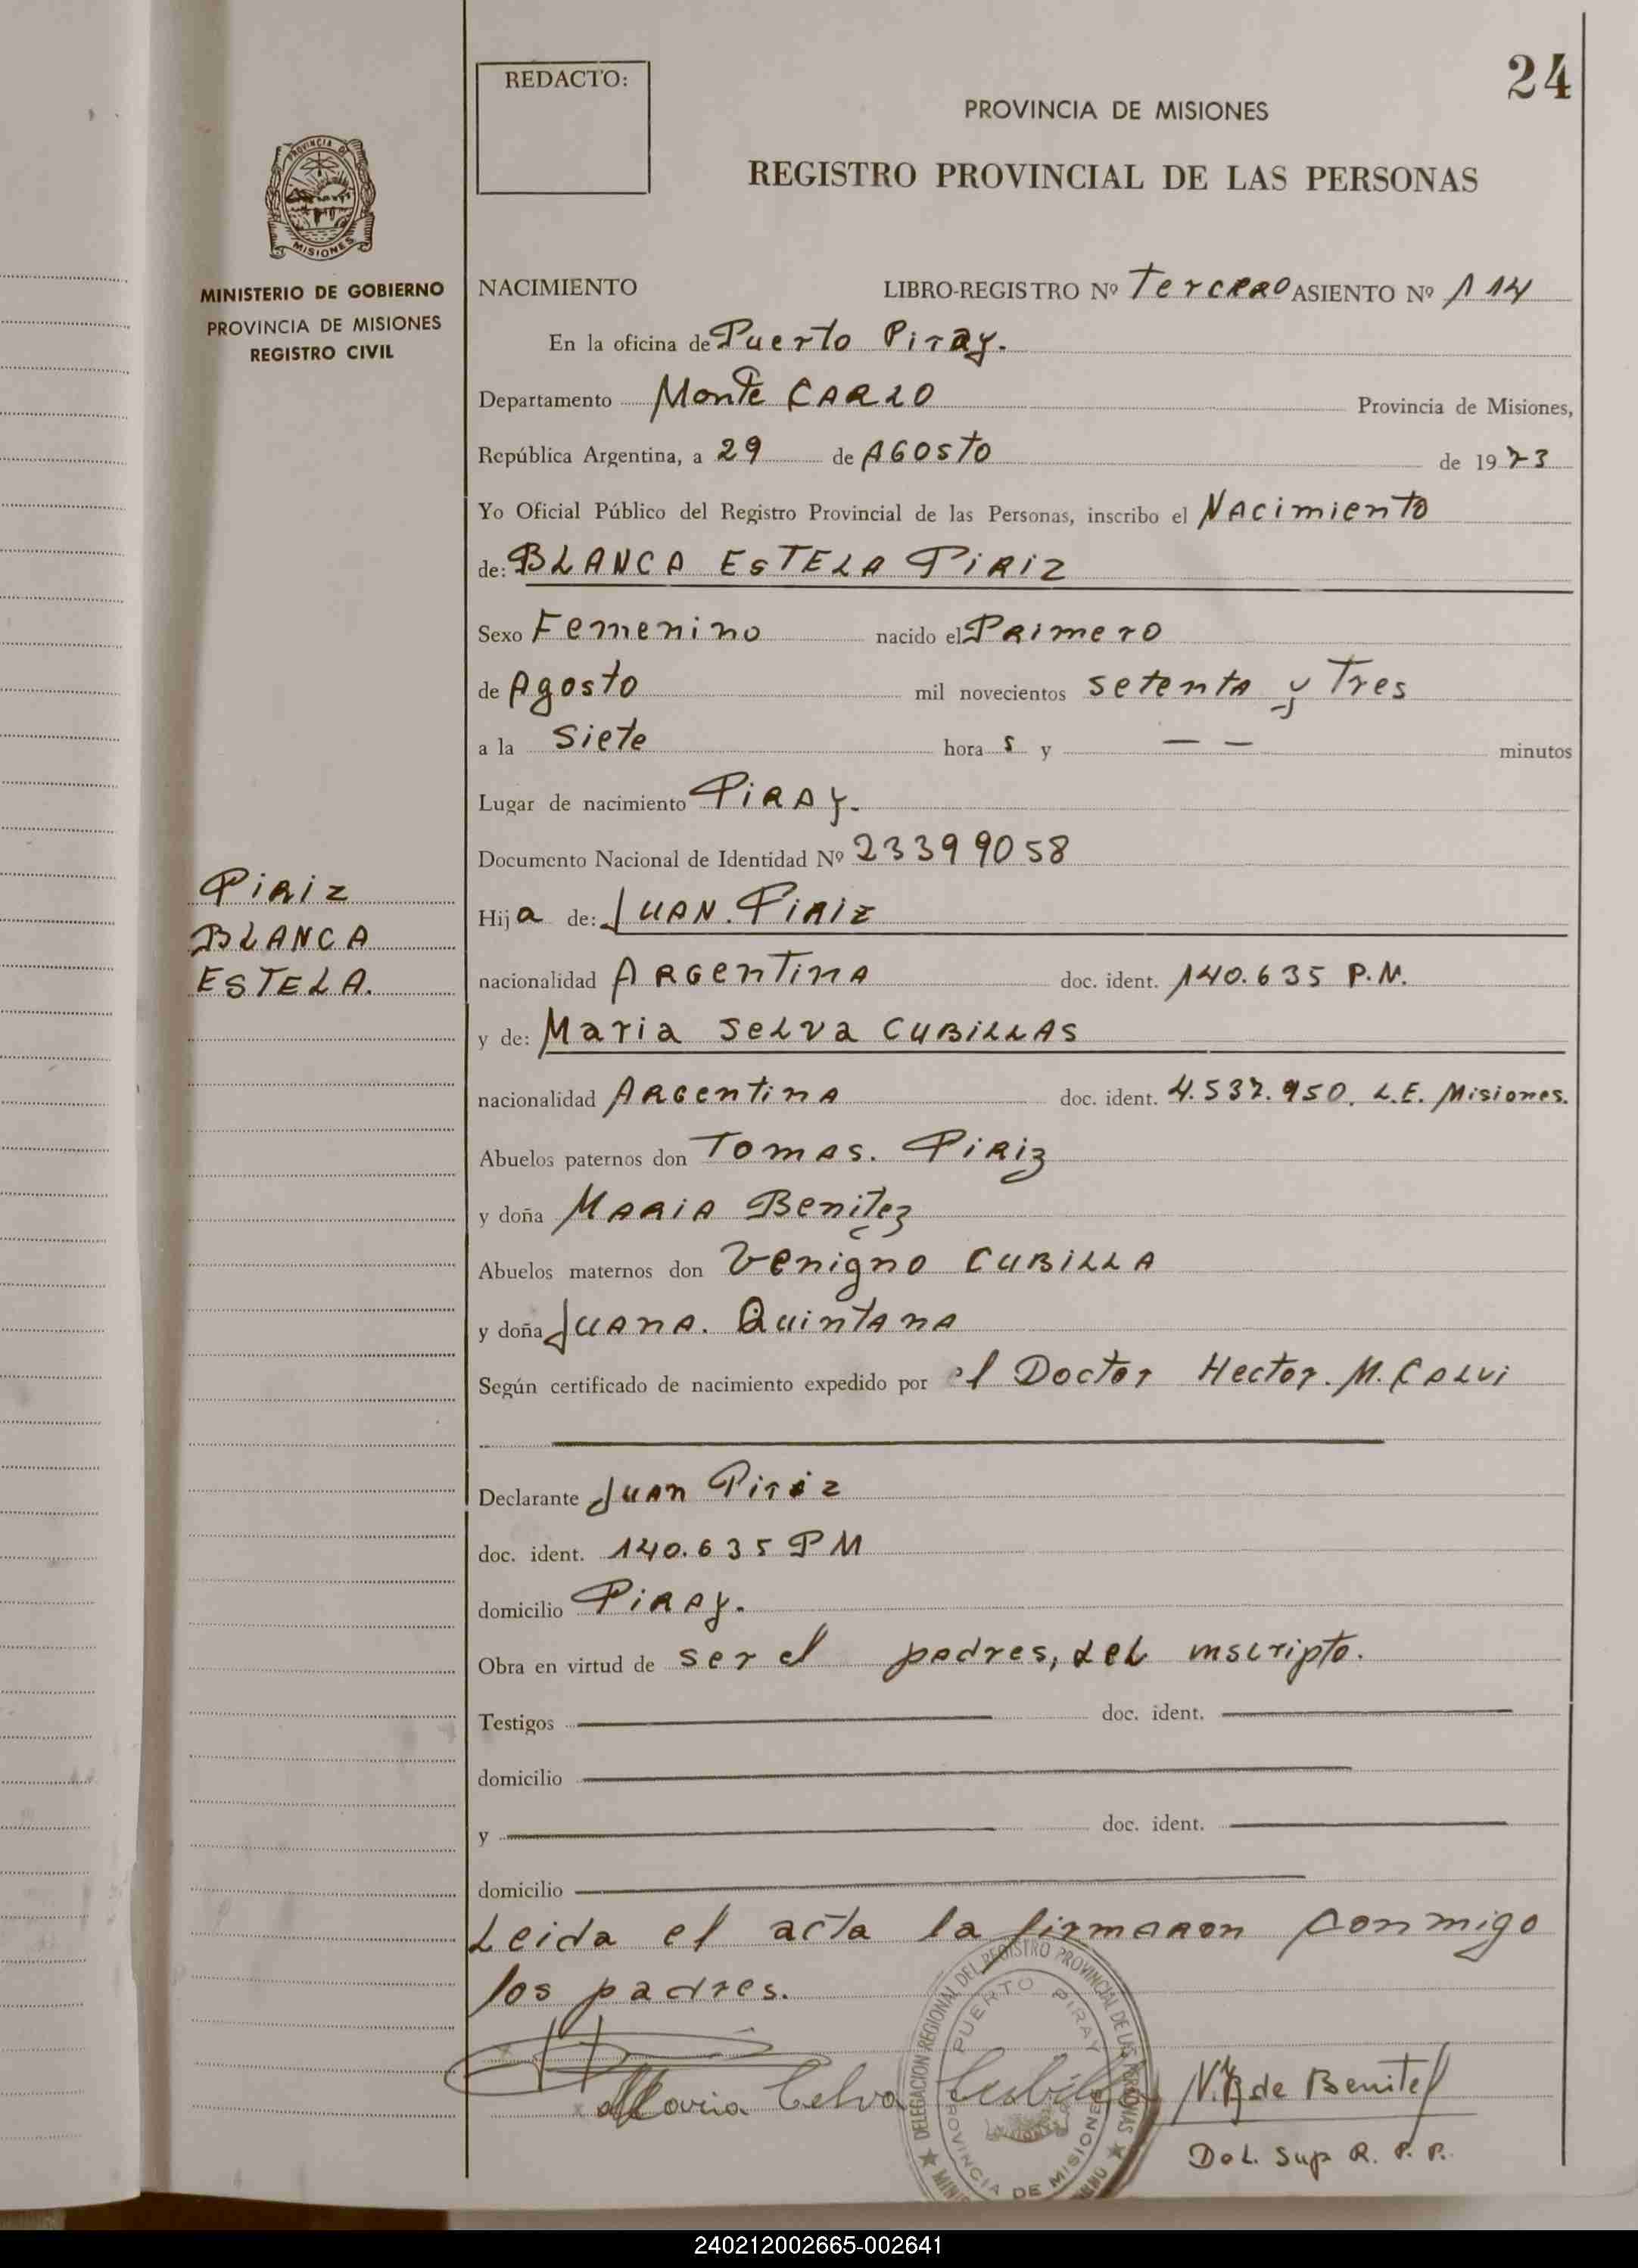 24
REDACTO:
PROVINCIA DE MISIONES
REGISTRO PROVINCIAL DE LAS PERSONAS
PROVINCIA DE
MISIONES
MINISTERIO DE GOBIERNO
PROVINCIA DE MISIONES
REGISTRO CIVIL
PiRiz
BLANCA
ESTELA.
NACIMIENTO LIBRO-REGISTRO Nº TerCeRO ASIENTO Nº 114
En la oficina de Puerto Piray.
Departamento Monte CARLO Provincia de Misiones,
República Argentina, a 29 de AGOSTO de 1973
Yo Oficial Público del Registro Provincial de las Personas, inscribo el NACimienTo
de: BLANCA ESTELA PiRiz
Sexo Femenino nacido el PRimero
de Agosto mil novecientos setenta y Tres
a la Siete hora s y — — minutos
Lugar de nacimiento PiRAy.
Documento Nacional de Identidad Nº 23399058
Hija de: JUAN. PiRiz
nacionalidad ARGenTinA doc. ident. 140.635 P.N.
y de: Maria SeLva CUBiLLAS
nacionalidad ARGentinA doc. ident. 4.537.950. L.E. Misiones.
Abuelos paternos don Tomas. PiRiz
y doña MARiA Benitez
Abuelos maternos don Venigno CUBiLLA
y doña JUAnA. QuintAnA
Según certificado de nacimiento expedido por el Doctor Hector. M. CALvi
Declarante JUAn Piriz
doc. ident. 140.635 PM
domicilio PiRAy.
Obra en virtud de ser el padres, del inscripto.
Testigos doc. ident.
domicilio
y doc. ident.
domicilio
Leida el acta la firmaron conmigo
los padres.
Maria Celva Cubilla
N. B de Benitez
DeL. Sup R. P. P.
DELEGACION REGIONAL DEL REGISTRO PROVINCIAL DE LAS PERSONAS
PUERTO PIRAY
PROVINCIA DE MISIONES
240212002665-002641